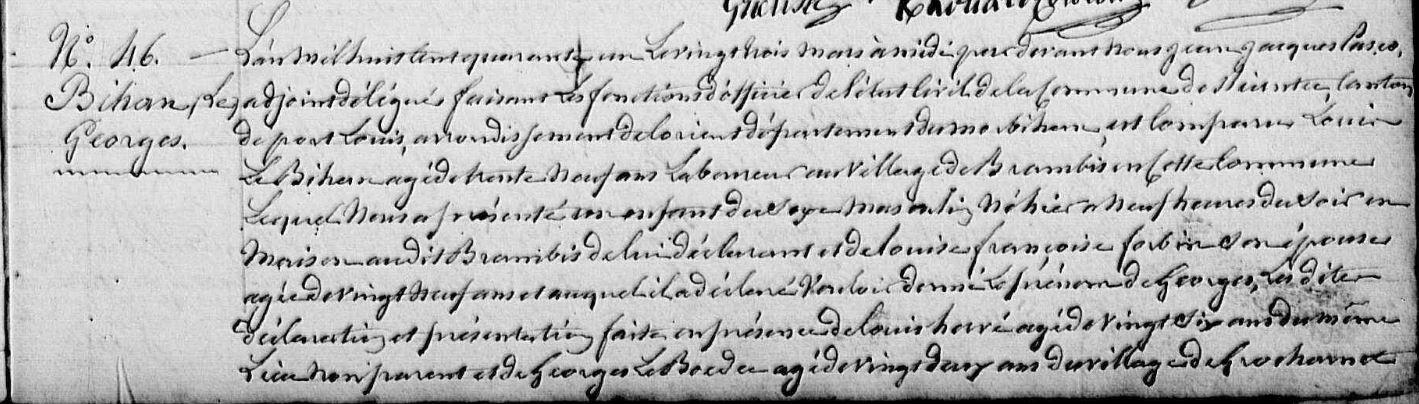 N.° 46. — L'an mil huit cent quarante un Le vingt trois mars à midi pardevant nous jean jacques Pasco,
Bihan (Le) adjoint délégué faisant Les fonctions d'officier de l'état civil de la Commune de Riantec, Canton
Georges. de port Louis, arrondissement de lorient département du morbihan, est Comparu Louis
Le Bihan agé de trente neuf ans Laboureur au village de Brambis en Cette Commune
Lequel Nous a présenté un enfant du sexe masculin Né hier à Neuf heures du soir en
Maison audit Brambis de lui déclarant et de louise françoise forbin son épouse
agée de vingt Neuf ans et auquel il a déclaré Vouloir donné Le prénom de Georges, Les dites
déclaration et présentation faite en présence de louis hervé agé de vingt Six ans du même
Lieu Non parent et de Georges Le Boedec agé de vingt deux ans du village de